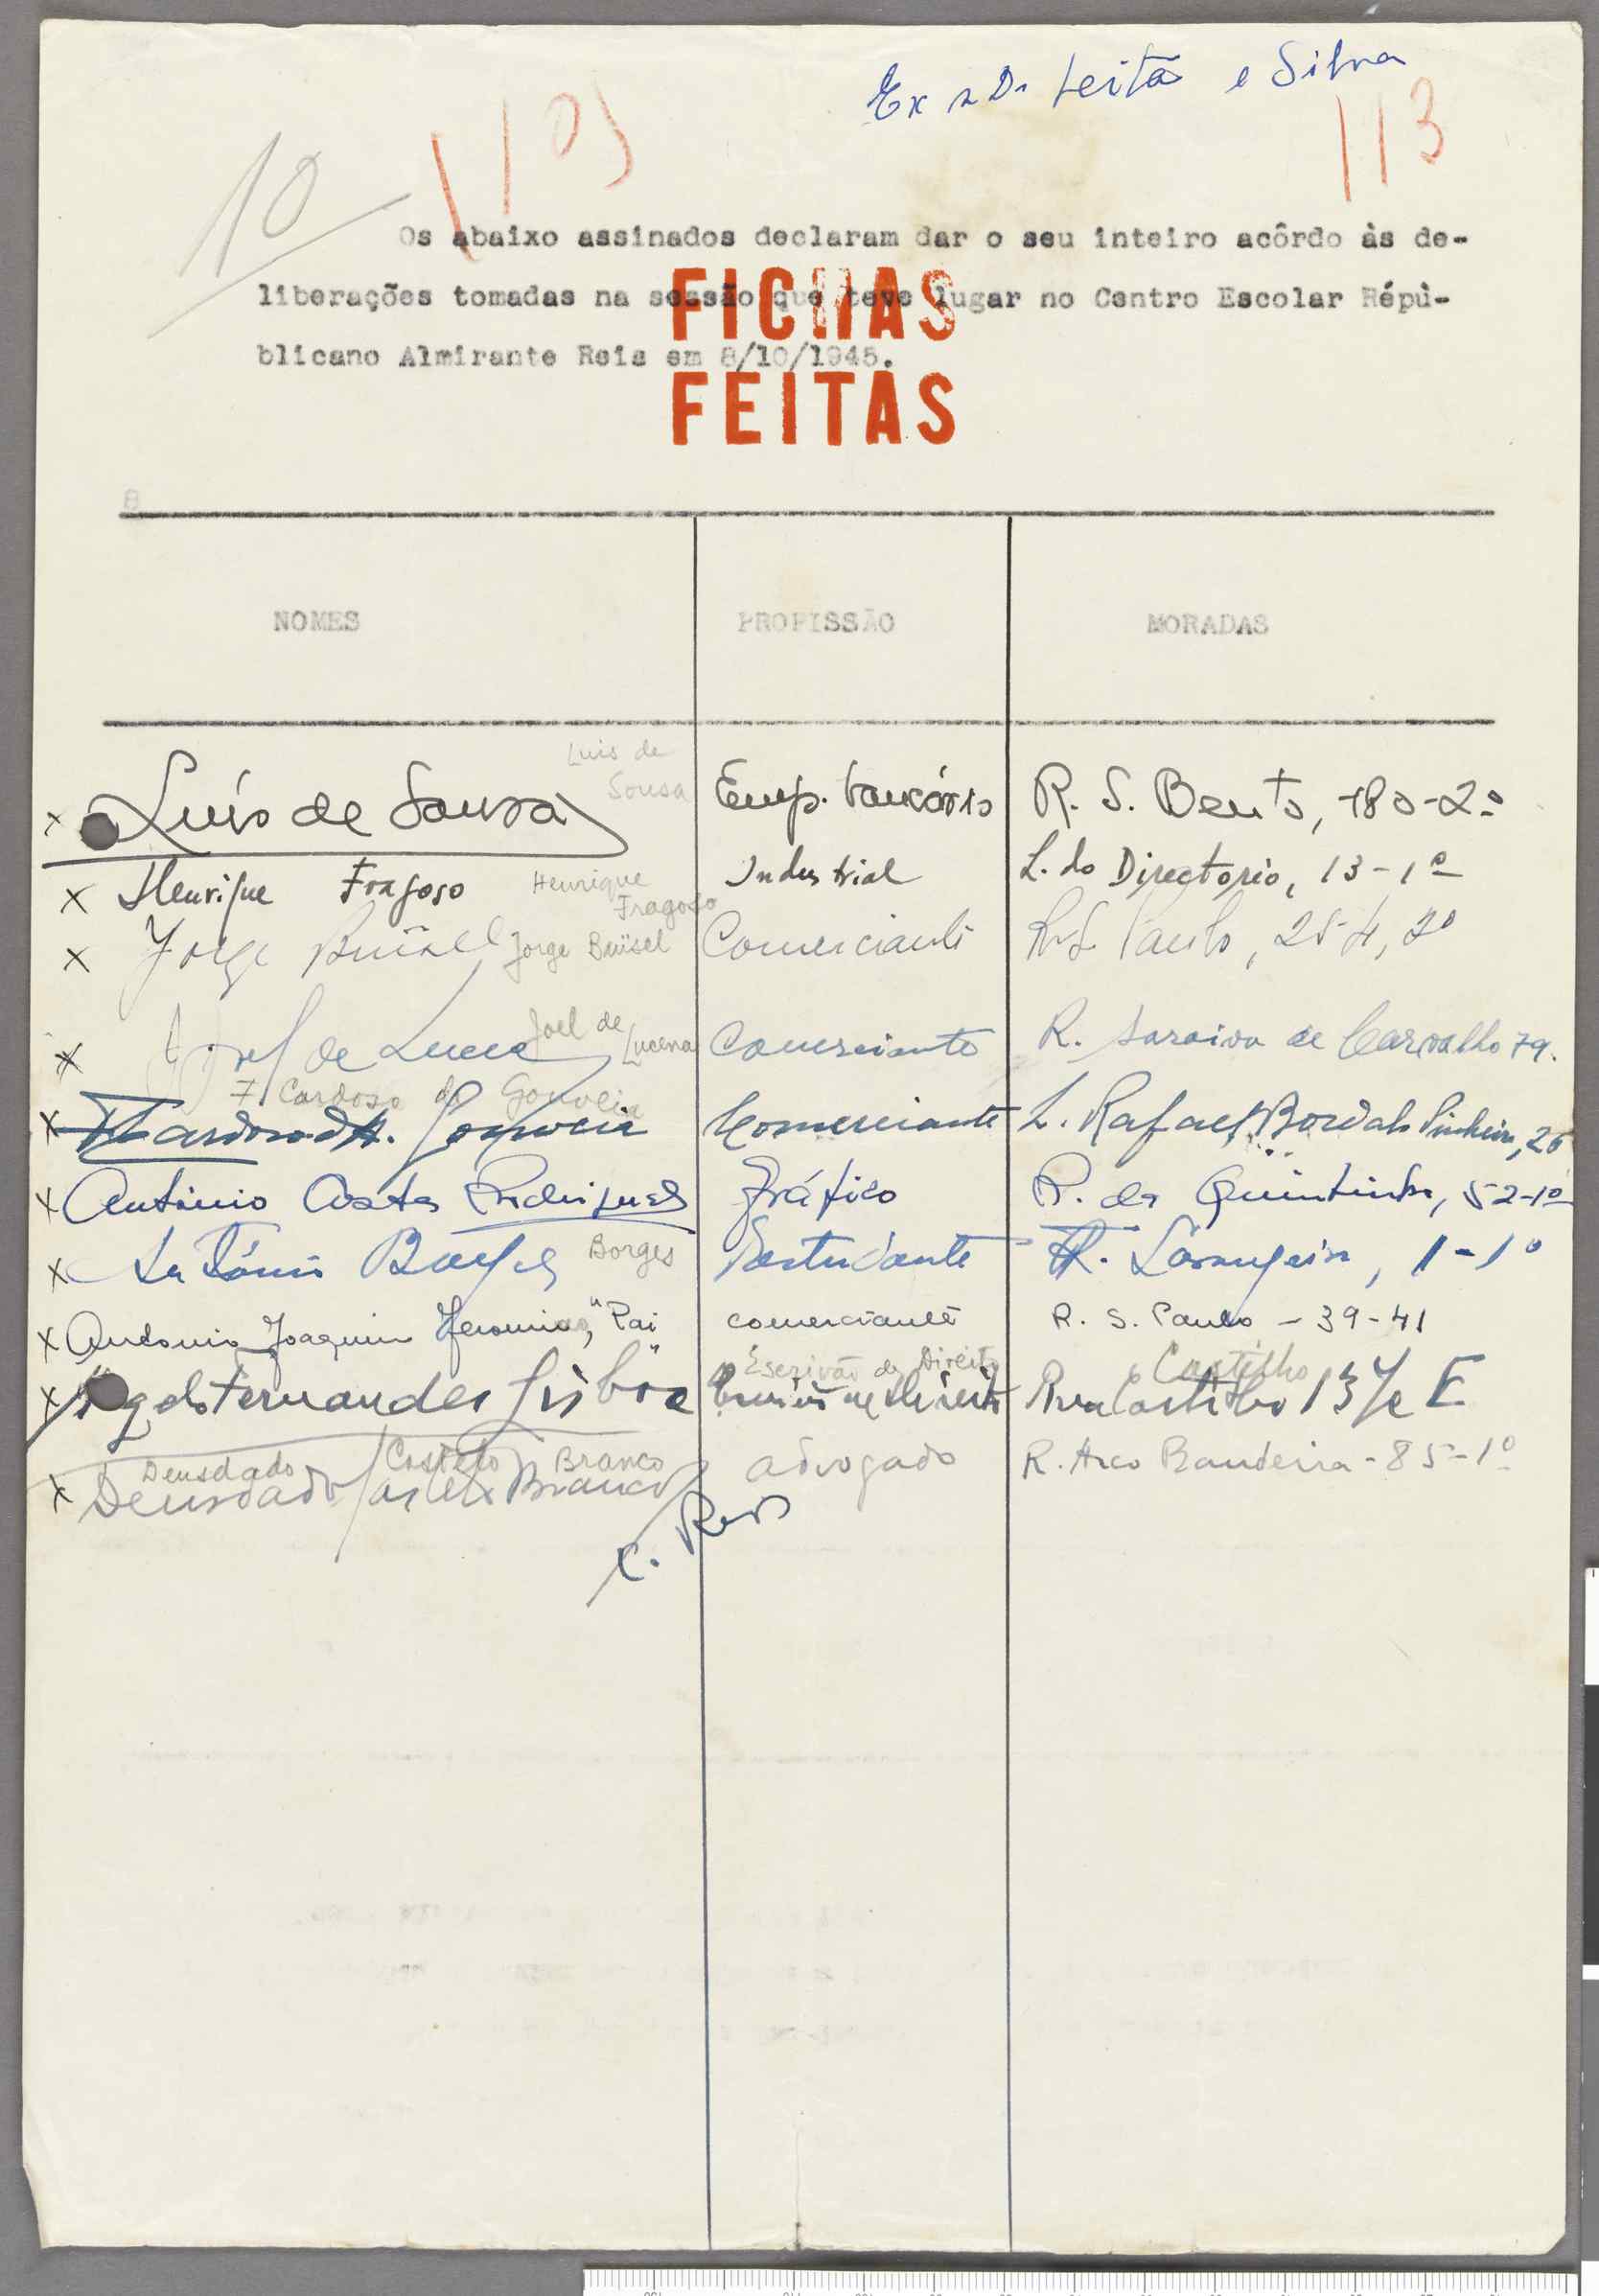 Ex Dr Leitão e Silva
1105
113
10
Os abaixo assinados declaram dar o seu inteiro acôrdo às de-
liberações tomadas na sessão que teve lugar no Centro Escolar Répù-
blicano Almirante Reis em 8/10/1945.
FICHAS
FEITAS
8
NOMES PROFISSÃO MORADAS
Luis de
Sousa
x Luís de Sousa Emp. bancário R. S. Bento, 180-2º
x Henrique Fragoso Henrique Fragoso Industrial L. do Directorio, 13-1º
x Jorge Büisel Jorge Büisel Comerciante R. S. Paulo, 254, 2º
x Joel de Lucena Joel de Lucena Comerciante R. Saraiva de Carvalho 79.
F. Cardoso de Gouveia
x F Cardoso d'A. Gouveia Comerciante L. Rafael Bordalo Pinheiro, 26
x António Costa Rodrigues Gráfico R. da Quintinha, 52-1º
x António Borges Borges Estudante R. Laranjeira, 1-1º
x Antonio Joaquim Jeronimo, "Pai" comerciante R. S. Paulo - 39-41
Escrivão de Direito Castilho
x Fernandes Lisboa Escrivão de Direito Rua Castilho 13 E
Deusdado Castelo Branco
x Deusdado Castelo Branco advogado R. Arco Bandeira - 85-1º
C. Reis